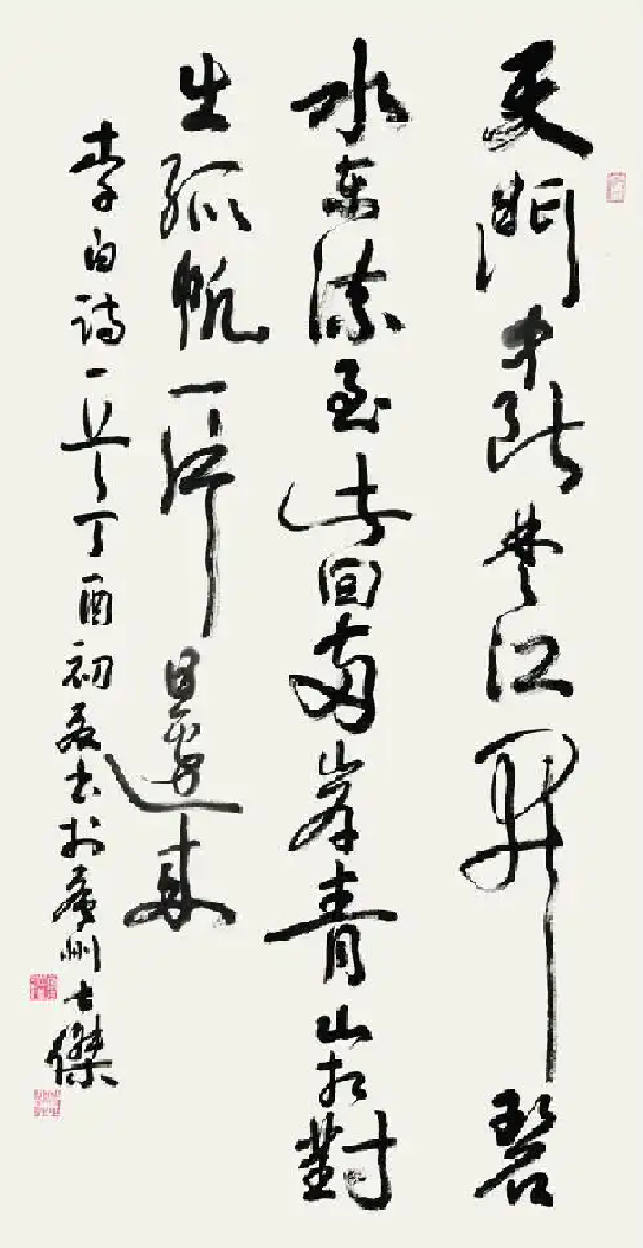 天門中断楚江開碧
水東流至此回兩岸青山相對
出孤帆一片日邊來
李白詩一首丁酉初夏書於廣州士傑